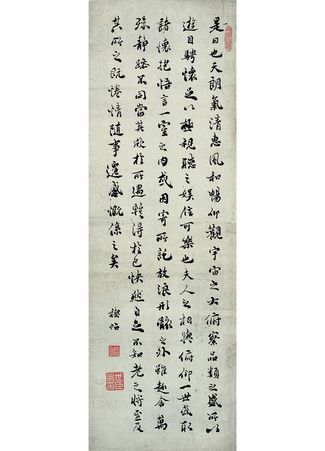 是日也天朗氣清惠風和暢仰觀宇宙之大俯察品類之盛所以
遊目騁懷足以極視聽之娛信可樂也夫人之相與俯仰一世或取
諸懷抱悟言一室之內或因寄所託放浪形骸之外雖趣舍萬
殊靜躁不同當其欣於所遇暫得於己快然自足不知老之將至及
其所之既惓情隨事遷感慨係之矣
禊帖